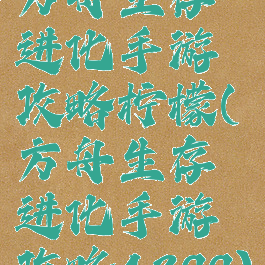 方舟生存
进化手游
攻略柠檬(
方舟生存
进化手游